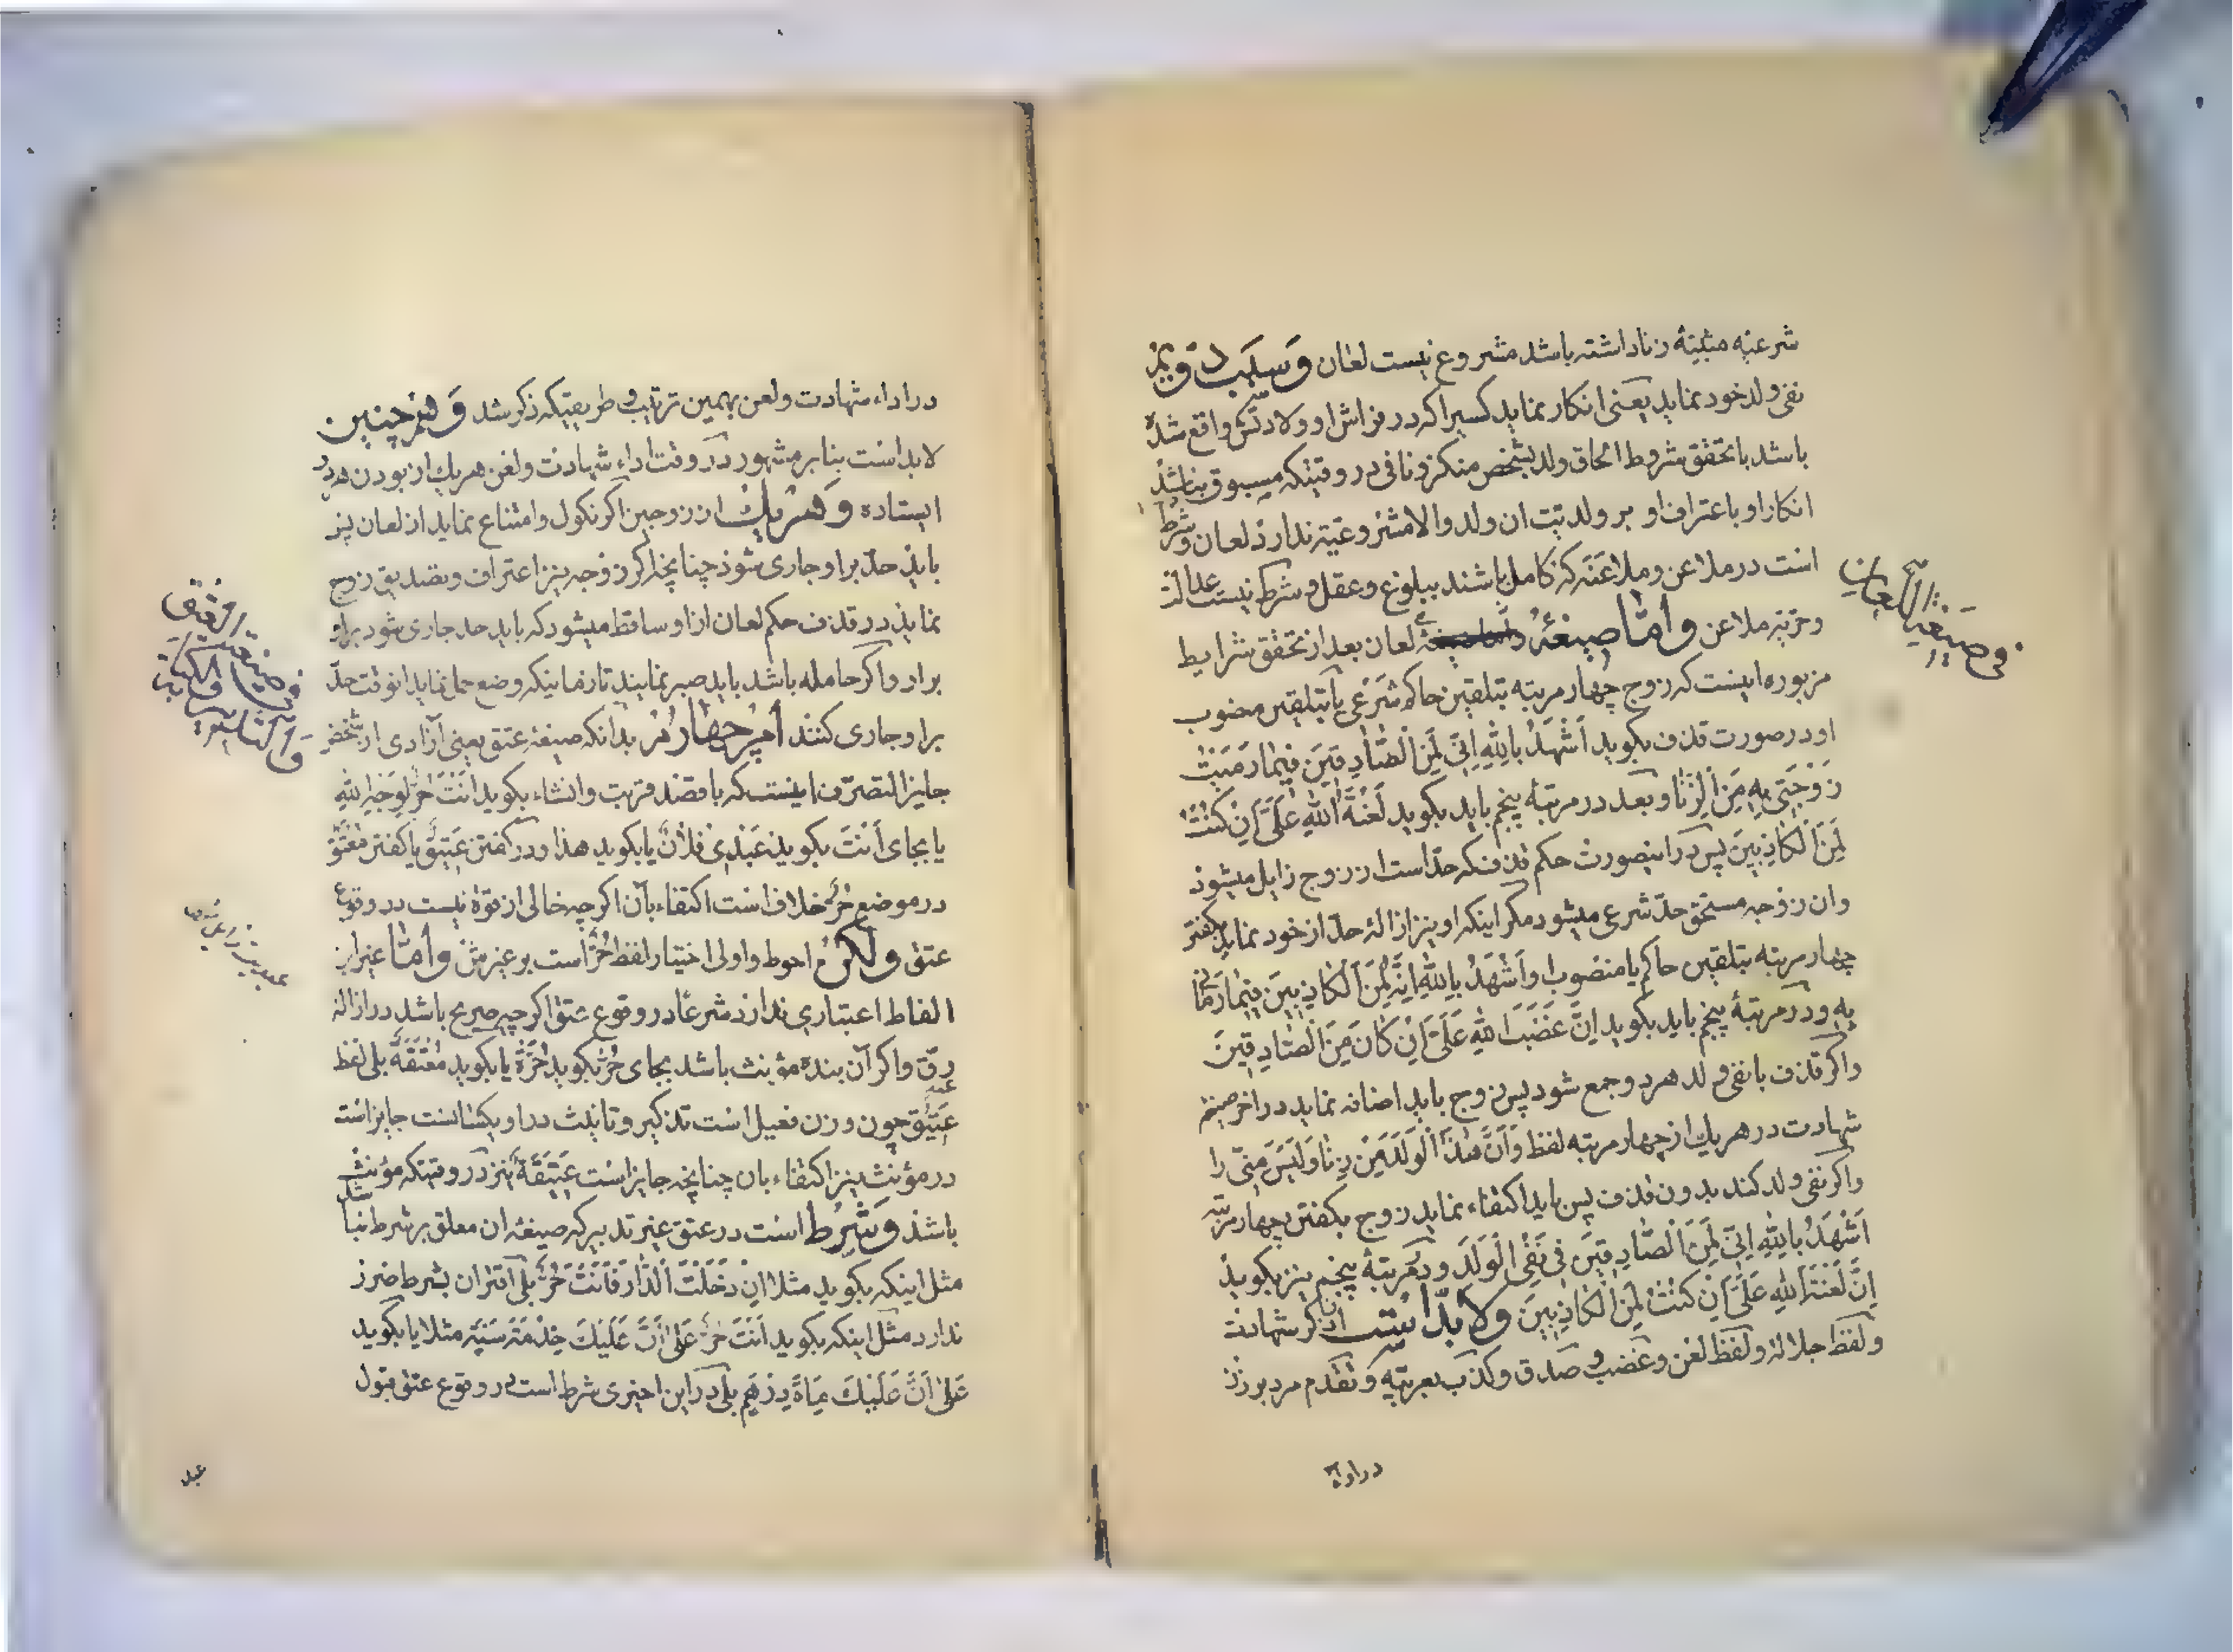 شرعیّه مثبتهٔ زنا داشته باشد مشروع نیست لعان وَسَبَب دوّیُم
نفی ولد خود نماید یعنی انکار نماید کسیرا که در فراش او ولادتش واقع شده
باشد با تحقق شروط الحاق ولد بشخص منکر و نافی در وقتیکه مسبوق نباشد
انکار او باعتراف او بر ولدیّت ان ولد والا مشروعیّة ندارد لعان و شرط
است در ملاعن و ملاعنه که کامل باشند ببلوغ و عقل و شرط نیست عدالت
و حریّة ملاعن وامّا صیغهٔ لعان بعد از تحقق شرایط
مزبوره اینست که زوج چهار مرتبه بتلقین حاکم شرعی یا بتلقین منصوب
او در صورت قذف بکوید اَشْهَدُ بِاللهِ اِنّی لَمِنَ الصّٰادِقینَ فیمٰا رَمَیْتُ
زَوْجَتی بِهِ مِنَ الزِّنٰا و بعد در مرتبهٔ پنجم باید بکوید لَعْنَةُ اللهِ عَلَیَّ اِنْ کُنْتُ
لَمِنَ الْکٰاذِبینَ پس در اینصورت حکم قذف که حدّ است از زوج زایل میشود
وان زوجه مستحق حدّ شرعی میشود مکر اینکه او نیز ازالهٔ حدّ از خود نماید بکفتن
چهار مرتبه بتلقین حاکم یا منصوب او اَشْهَدُ بِاللهِ اِنَّهُ لَمِنَ الْکٰاذِبینَ فیمٰا رَمٰانی
بِهِ و در مرتبهٔ پنجم باید بکوید اِنَّ غَضَبَ اللهِ عَلَیَّ اِنْ کٰانَ مِنَ الصّٰادِقینَ
واکر قذف با نفی ولد هر دو جمع شود پس زوج باید اضافه نماید در اخر صیغهٔ
شهادت در هر یک از چهار مرتبه لفظ وَاَنَّ هٰذَا الْوَلَدَ مِنْ زِنٰا وَلَیْسَ مِنّی را
واکر نفی ولد کند بدون قذف پس باید اکتفاء نماید زوج بکفتن چهار مرتبه
اَشْهَدُ بِاللهِ اِنّی لَمِنَ الصّٰادِقینَ فی نَفْیِ الْوَلَدِ و در مرتبهٔ پنجم نیز بکوید
اِنَّ لَعْنَةَ اللهِ عَلَیَّ اِنْ کُنْتُ لَمِنَ الْکٰاذِبینَ ولابدّ است از ذکر شهادت
و لفظ جلاله و لفظ لعن و غضب و صدق و کذب بعربیّه و تقدم مرد بر زن
در اداء
فی صیغة اللعان
در اداء شهادت و لعن بهمین ترتیب و طریقیکه ذکر شد وَهمچنین
لابد است بنابر مشهور در وقت اداء شهادت و لعن هر یک از بودن هر دو
ایستاده وَهریک از زوجین اکر نکول و امتناع نماید از لعان پس
باید حدّ بر او جاری شود چنانچه اکر زوجه نیز اعتراف و تصدیق زوج
نماید در قذف حکم لعان از او ساقط میشود که باید حد جاری شود بر او
براو واکر حامله باشد باید صبر نمایند تا زمانیکه وضع حمل نماید انوقت حدّ
براو جاری کنند اَمْرِ چهارُم بدانکه صیغهٔ عتق یعنی آزادی از شخص
جایز التصرّف اینست که با قصد قربت و انشاء بکوید اَنْتَ حُرٌّ لِوَجْهِ اللهِ
یا بجای اَنْتَ بکوید عَبْدی فُلٰانٌ یا بکوید هذا و در کفتن عَتیقٌ یا کفتن مُعْتَقٌ
در موضع حُرٌّ خلاف است اکتفاء بآن اکرچه خالی از قوّة نیست در وقوع
عتق ولکن احوط و اولی اختیار لفظ حُرٌّ است بر غیرش وامّا غیر از
الفاظ اعتباری ندارد شرعًا در وقوع عتق اکرچه صریح باشد در ازالهٔ
رقّ واکر آن بنده مؤنث باشد بجای حُرٌّ بکوید حُرَّةٌ یا بکوید مُعْتَقَةٌ بلی لفظ
عَتیقٌ چون وزن فعیل است تذکیر و تانیث در او یکسانست جایز است
در مؤنث نیز اکتفاء بان چنانچه جایز است عَتیقَةٌ نیز در وقتیکه مؤنث
باشد وَشَرْط است در عتق غیر تدبیر که صیغهٔ ان معلق بر شرط نباشد
مثل اینکه بکوید مثلا اِنْ دَخَلْتَ الدّٰارَ فَاَنْتَ حُرٌّ بلی اقتران بشرط ضرر
ندارد مثل اینکه بکوید اَنْتَ حُرٌّ عَلیٰ اَنَّ عَلَیْکَ خِدْمَةَ سَنَةٍ مثلا یا بکوید
عَلیٰ اَنَّ عَلَیْکَ مِاَةَ دِرْهَمٍ بلی در این اخیری شرط است در وقوع عتق قبول
عبد
فی صیغة العتق
والکتابة
والتدبیر